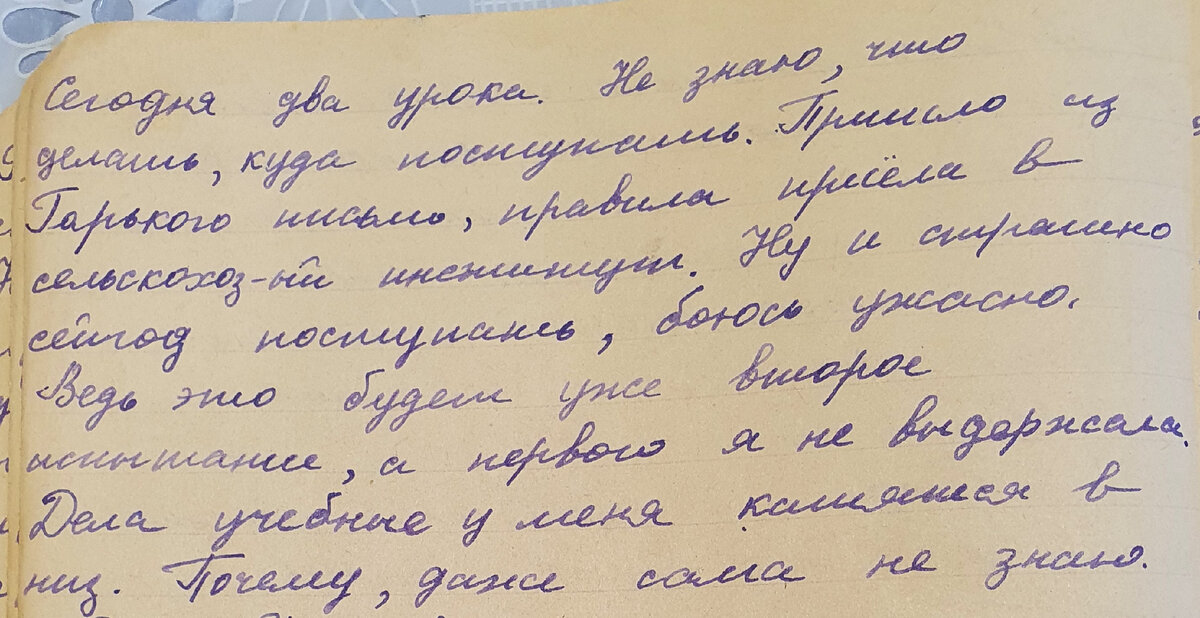 Сегодня два урока. Не знаю, что
делать, куда поступать. Пришло из
Горького письмо, правила приёла в
сельскохоз-ый институт. Ну и страшно
сейгод поступать, боюсь ужасно.
Ведь это будет уже второе
испытание, а первого я не выдержала.
Дела учебные у меня катятся в
низ. Почему, даже сама не знаю.